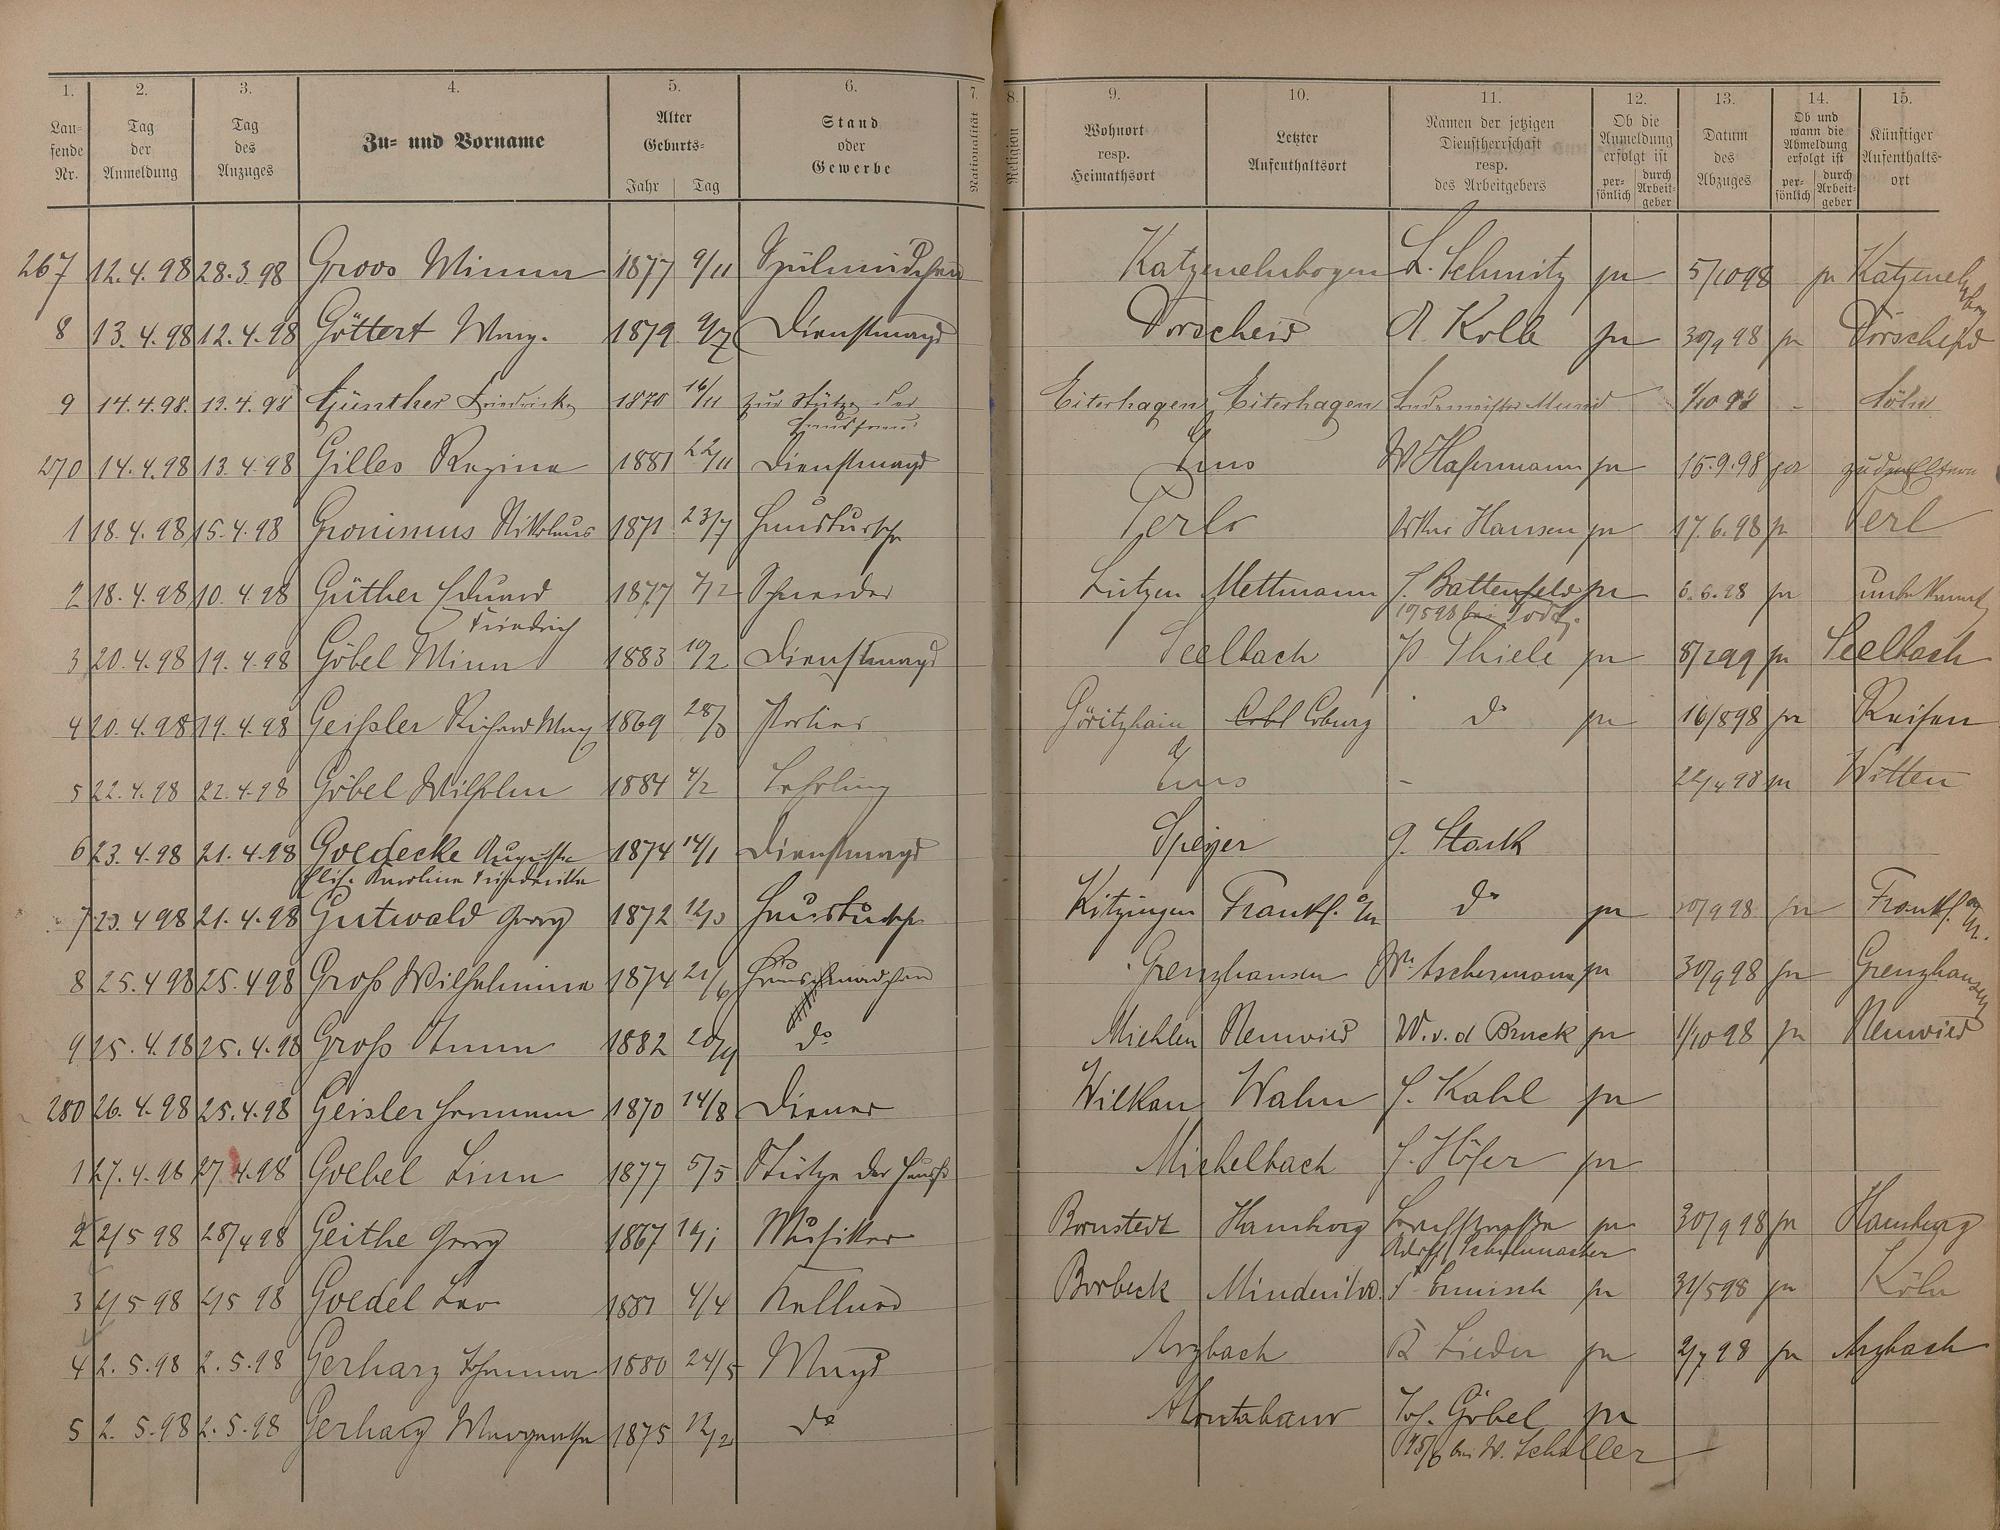 1. 2. 3. 4. 5. 6. 7. 8. 9. 10. 11. 12. 13. 14. 15.
Laufende Nr.
Tag der Anmeldung
Tag des Anzuges
Zu- und Vorname
Alter Geburts- Jahr Tag
Stand oder Gewerbe
Nationalität
Religion
Wohnort resp. Heimathsort
Letzter Aufenthaltsort
Namen der jetzigen Dienstherrschaft resp. des Arbeitgebers
Ob die Anmeldung erfolgt ist persönlich durch Arbeitgeber
Datum des Abzuges
Ob und wann die Abmeldung erfolgt ist persönlich durch Arbeitgeber
Künftiger Aufenthaltsort
267 12.4.98 28.3.98 Groos Minna 1877 9/11 Spülmädchen Katzenelnbogen L. Schmitz 5/10 98 Katzenelnbog
8 13.4.98 12.4.98 Göttert Marg. 1879 9/7 Dienstmagd Dörscheid A. Kolb 30/9 98 Dörscheid
9 14.4.98. 13.4.98 Günther Friedricke 1870 16/11 zur Stütze der Hausfrau Eiterhagen Eiterhagen 1/10 98 - Köln
270 14.4.98 13.4.98 Gilles Regina 1881 22/11 Dienstmagd Ems W Hasermann 15.9.98 zu den Eltern
1 18.4.98 15.4.98 Gronimus Nikolaus 1871 23/7 Hausbursche Perl Hansen 17.6.98 Perl
2 18.4.98 10.4.98 Güther Eduard Friedrich 1877 7/12 Schneider Lützen Mettmann J. Battenfeld 6.6.98 unbekannt
3 20.4.98 19.4.98 Göbel Minna 1883 10/2 Dienstmagd Seelbach P. Thiele 8/2 99 Seelbach
4 20.4.98 19.4.98 Geißler Richard Max 1869 28/8 Portier Göritzhain Cobl Coburg do 16/8 98 Reisen
5 22.4.98 22.4.98 Göbel Wilhelm 1884 4/2 Lehrling Ems - 22/4 98 Witten
6 23.4.98 21.4.98 Goedecke Auguste Elis. Karoline Friederike 1874 14/1 Dienstmagd Speyer G. Stark
7 23.4 98 21.4.98 Gutwald Georg 1872 12/3 Hausbursche Kitzingen Frankf. a/M do 30/9 98 Frankf. a/M.
8 25.4 98 25.4 98 Groß Wilhelmine 1874 21/6 Hausmädchen Grenzhausen W. Aschermann 30/9 98 Grenzhausen
9 25.4.98 25.4.98 Groß Anna 1882 20/9 do Miehlen Neuwied W. v. d Bruck 1/10 98 Neuwied
280 26.4.98 25.4.98 Geisler Hermann 1870 14/8 Diener Wilkau Wahn J. Kahl
1 27.4.98 27.4.98 Goebel Lina 1877 5/5 Stütze der Hausfr Michelbach J. Höfer
2 2/5 98 28/4 98 Geithe Georg 1867 Musiker Bornstedt Hamburg Schuhmacher 30/9 98 Hamburg
3 2/5 98 2/5 98 Goedel Leo 1881 4/4 Kellner Borbeck 31/5 98 Köln
4 2.5.98 2.5.98 Gerharz Johanna 1880 24/5 Magd Arzbach Lieder 2/7 98 Arzbach
5 2.5.98 2.5.98 Gerharz Margarethe 1875 12/2 do Montabaur Jos. Göbel
15/6 bei W. Schaller